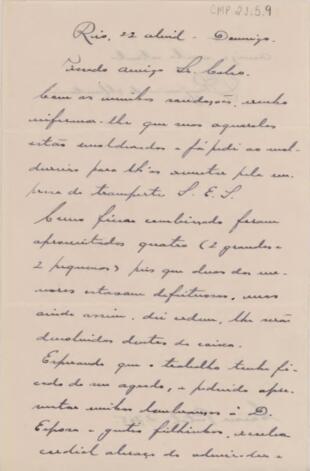 CMP 2J.5.9
Rio, 22 abril - Domingo.
Prezado amigo Sr.
Com as minhas saudações, venho
informar-lhe que suas aquarelas
estão emolduradas e já pedi ao mol-
dureiro para lh'as remetter pela em-
presa de transporte S. E. S.
Como ficou combinado foram
aproveitados quatro (2 grandes e
2 pequenos) pois que duas das me-
nores estavam defeituosas, mas
ainda assim, dei ordem, lhe serão
devolvidas dentro do caixa.
Esperando que o trabalho tenha fi-
cado do seu agrado, e pedindo apre-
sentar minhas lembranças à D.
Esposa e filhinhos, receba
cordial abraço do admirador e